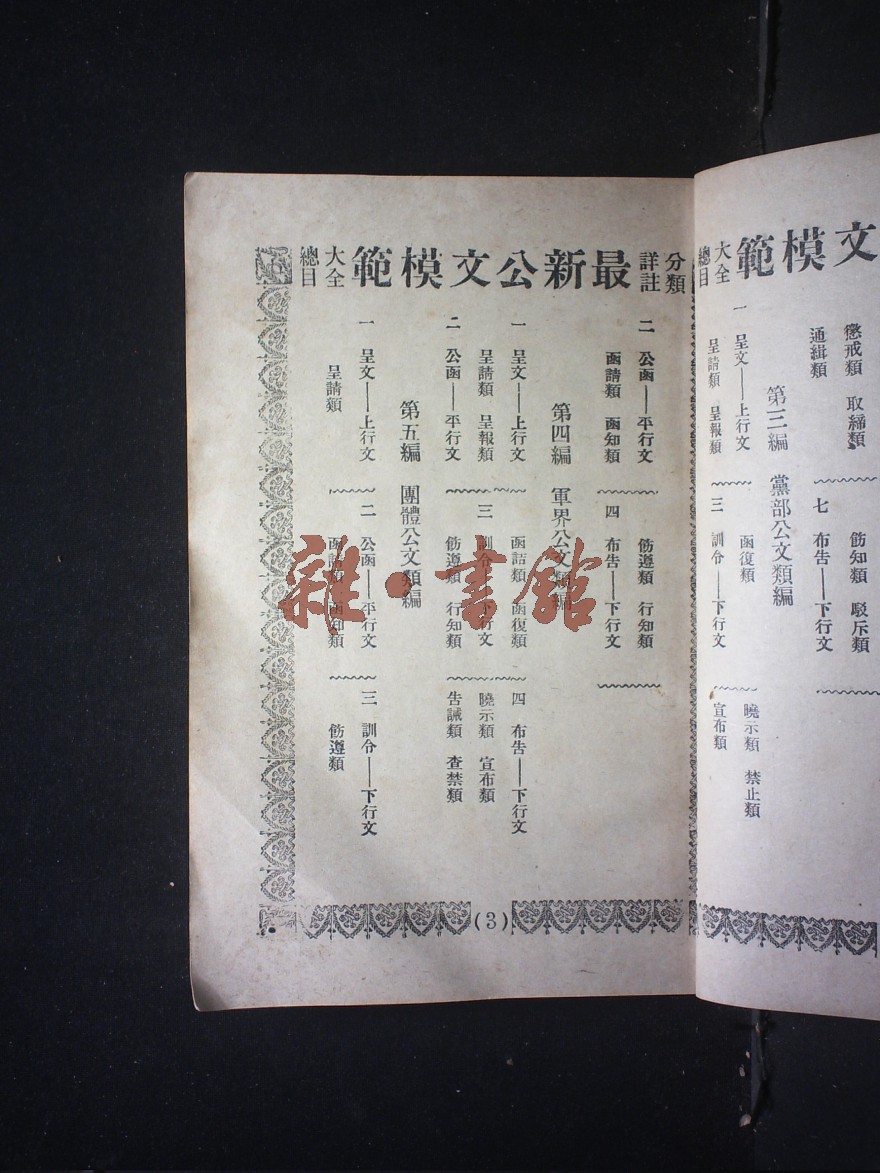 文模範
大全
總目
懲戒類 取締類
通緝類
飭知類 駁斥類
七 布告——下行文
第三編 黨部公文類編
一 呈文——上行文
呈請類 呈報類
函復類
三 訓令——下行文
曉示類 禁止類
宣布類
分類
詳註
最新公文模範
大全
總目
二 公函——平行文
函請類 函知類
飭遵類 行知類
四 布告——下行文
第四編 軍界公文類編
一 呈文——上行文
呈請類 呈報類
二 公函——平行文
函請類 函復類
三 訓令——下行文
飭遵類 行知類
四 布告——下行文
曉示類 宣布類
告誡類 查禁類
第五編 團體公文類編
一 呈文——上行文
呈請類
二 公函——平行文
函請類 函知類
三 訓令——下行文
飭遵類
(3)
雜·書館